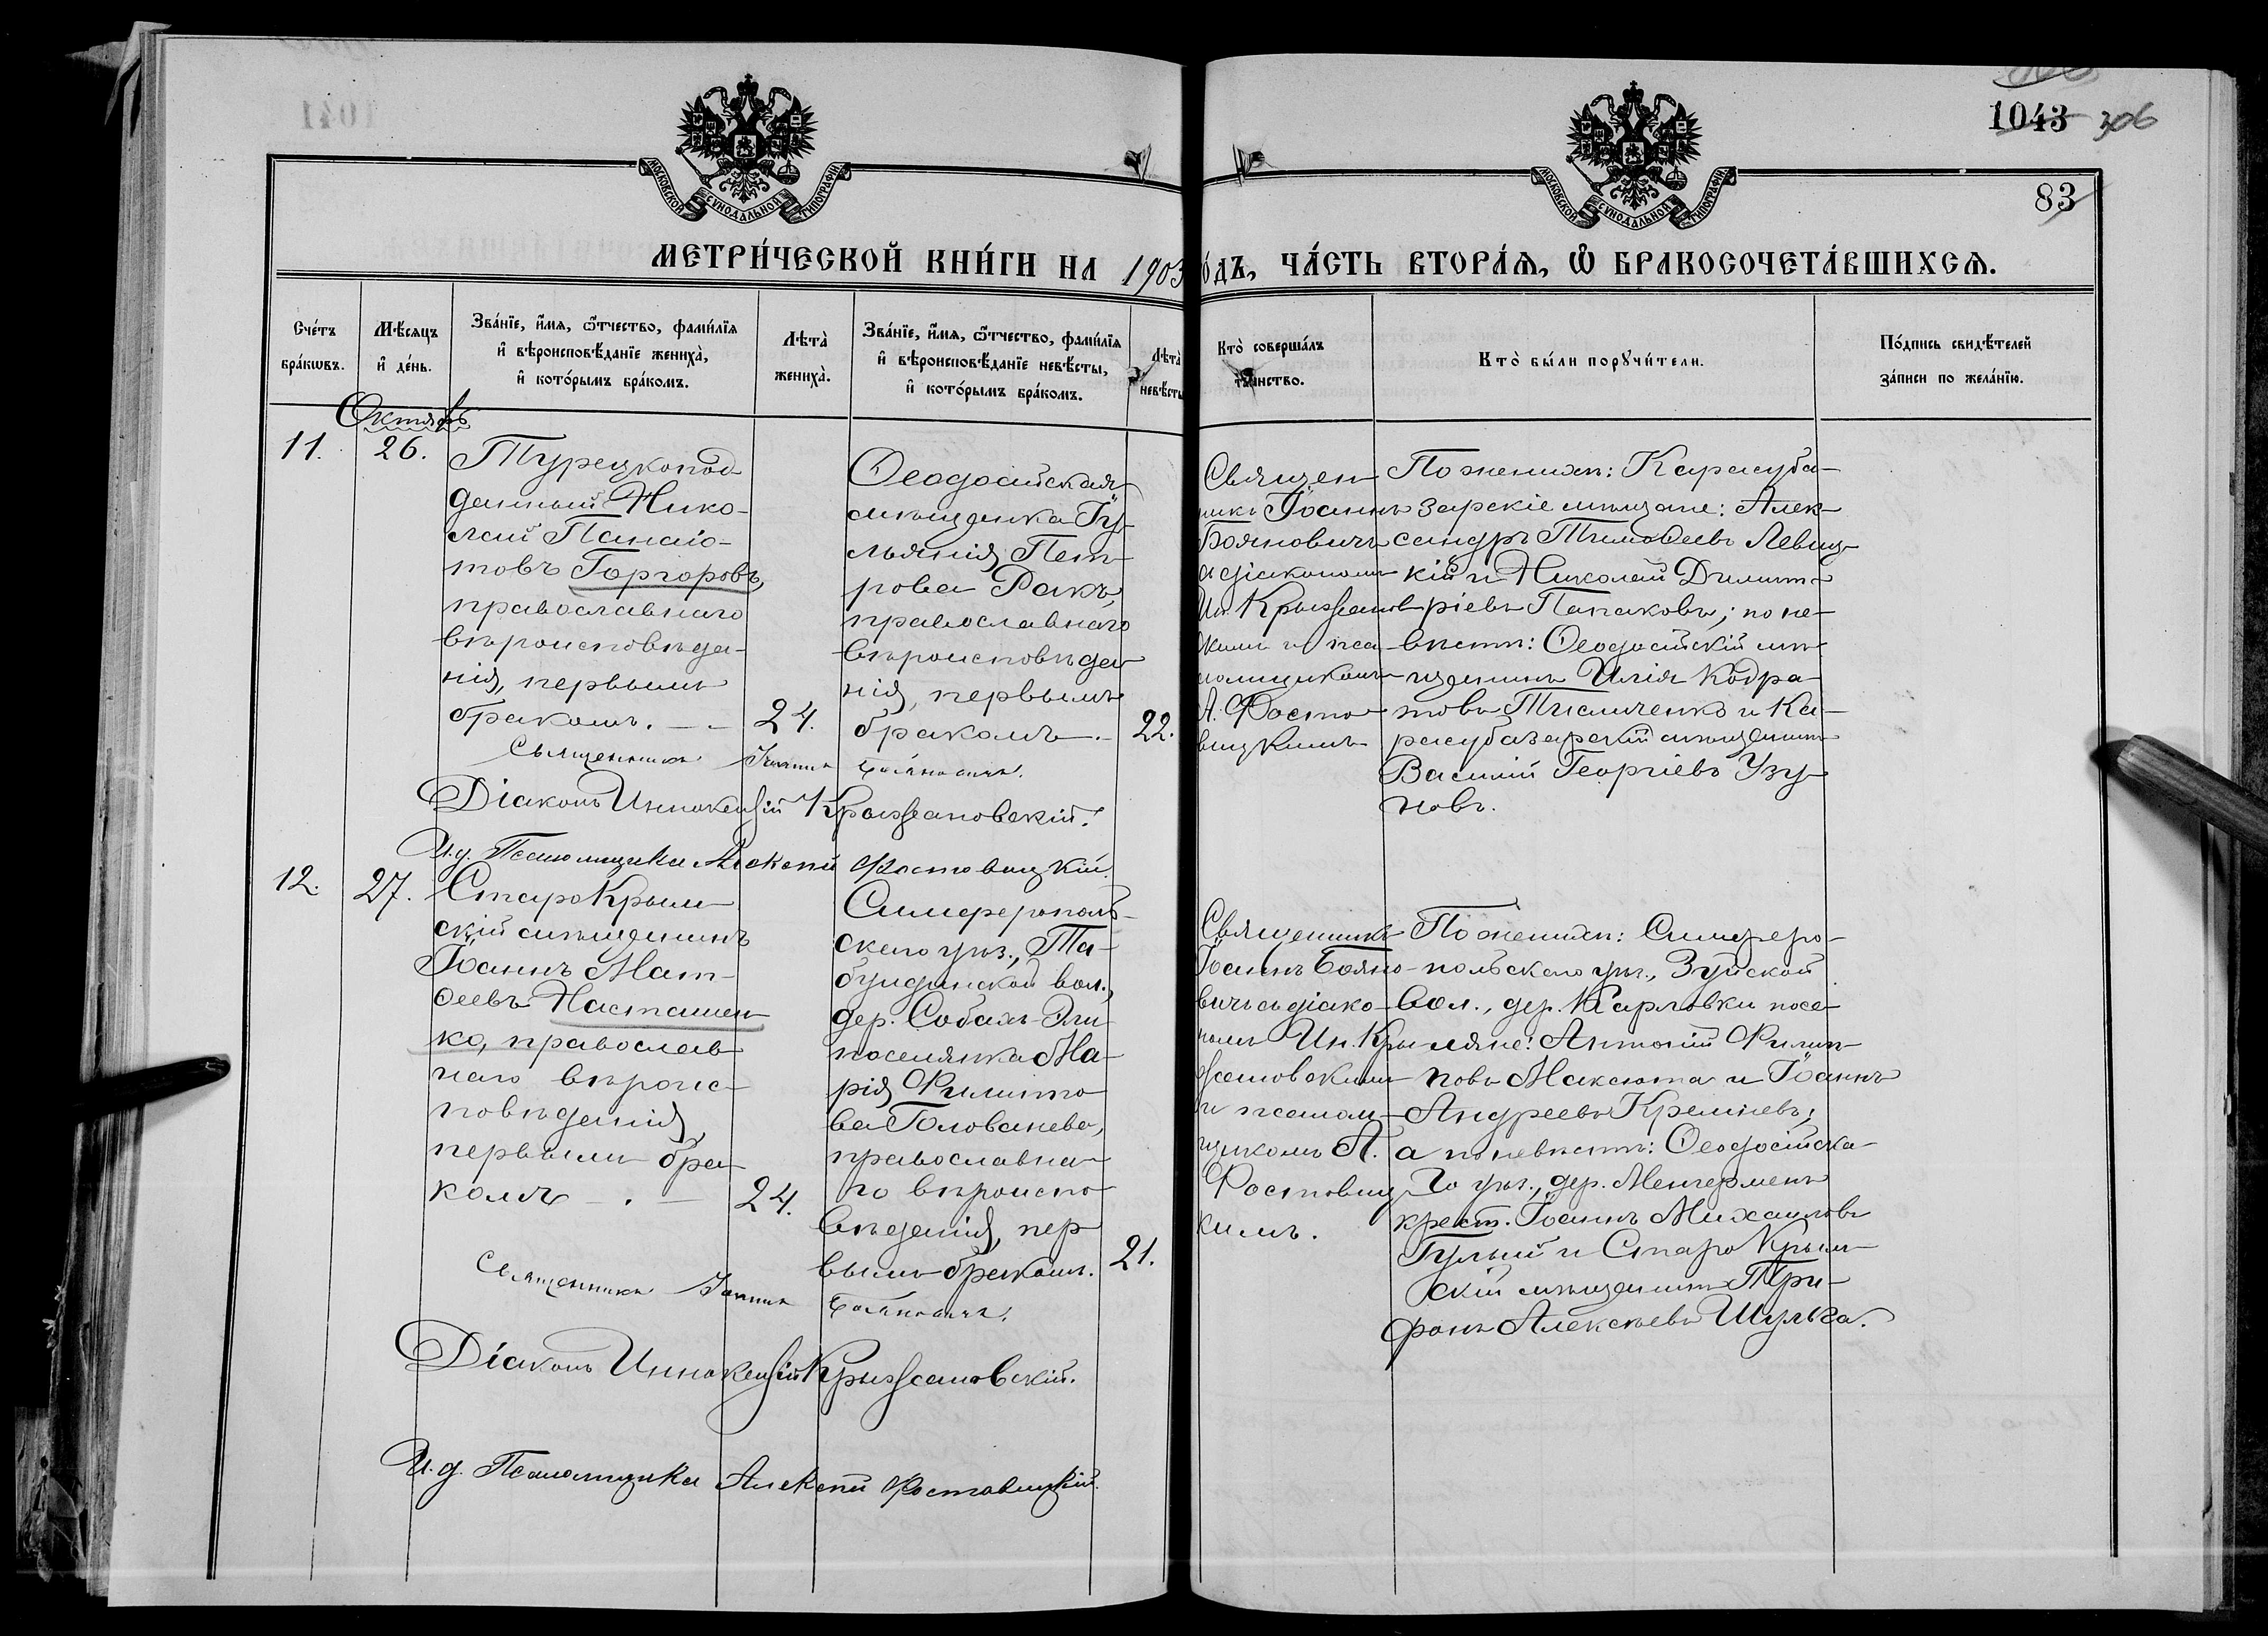 1043 306
83
МОСКОВСКОЙ СѴНОДАЛЬНОЙ ТИПОГРАФІИ
МОСКОВСКОЙ СѴНОДАЛЬНОЙ ТИПОГРАФІИ
МЕТРИ́ЧЕСКОЙ КНИ́ГИ НА 1903
О́ДЪ, ЧА́СТЬ ВТОРА́Ѧ, Ѡ҆ БРАКОСОЧЕТА́ВШИХСѦ.
Сче́тъ
бра́кѡвъ.
Мѣ́сяцъ
и҆ де́нь.
Зва́нїе, и҆́мѧ, ѻ҆́тчество, фами́лїѧ
и҆ вѣроисповѣ́данїе жениха̀,
и҆ кото́рымъ бра́комъ.
Лѣта̀
жениха̀.
Зва́нїе, и҆́мѧ, ѻ҆́тчество, фами́лїѧ
и҆ вѣроисповѣ́данїе невѣ́сты,
и҆ кото́рымъ бра́комъ.
Лѣта̀
невѣ́сты
Кто̀ соверша́лъ
таинство.
Кто̀ бы́ли порꙋчи́тели.
По́дпись свидѣ́телей
за́писи по жела́нїю.
Октябрь
11.
26.
Турецкопод
данный Нико-
лай Панаіо-
товъ Горгоровъ,
православнаго
вѣроисповѣда-
нія, первымъ
бракомъ. — -
24.
Ѳеодосійская
мѣщанка Іу-
льянія Пет-
рова Ракъ,
православнаго
вѣроисповѣда
нія, первымъ
бракомъ -
22.
Священ
никъ Іоаннъ
Бояновичъ
съ діакономъ
Ин. Крыжанов
скимъ и пса-
ломщикомъ
А. Фосто
вицкимъ
По женихѣ: Карасуба-
зарскіе мѣщане: Алек-
сандръ Тимоѳеевъ Левиц-
кій и Николай Димит-
ріевъ Папаковъ; по не-
вѣстѣ: Ѳеодосійскій мѣ-
щанинъ Илія Кодра-
товъ Тисличенко и Ка-
расубазарскій мѣщанинъ
Василій Георгіевъ Узу-
новъ.
Священникъ Іоаннъ Бояновичъ.
Діаконъ Иннокентій Крыжановскій.
И.д. Псаломщика Алексѣй Фостовицкій.
12.
27.
СтароКрым-
скій мѣщанинъ
Іоаннъ Мат-
ѳеевъ Насташен
ко, православ-
наго вѣроис-
повѣданія,
первымъ бра-
комъ - . —
24.
Симферополь-
скаго уѣз., Та-
булдинской вол.,
дер. Собахъ-Эли
поселянка Ма-
рія Филиппо-
ва Голованева,
православна-
го вѣроиспо-
вѣданія, пер-
вымъ бракомъ.
21.
Священникъ
Іоаннъ Бояно-
вичъ съ діако-
номъ Ин. Кры
жановскимъ
и псалом-
щикомъ А.
Фостовиц
кимъ.
По женихѣ: Симферо-
польскаго уѣз., Зуйской
вол., дер. Карловки посе-
ляне: Антоній Филип-
повъ Максюта и Іоаннъ
Андреевъ Кремневъ;
а по невѣстѣ: Ѳеодосійска-
го уѣз., дер. Менгерменъ
крест. Іоаннъ Михаиловъ
Гулый и СтароКрым-
скій мѣщанинъ Три-
фонъ Алексѣевъ Шульга.
Священникъ Іоаннъ Бояновичъ.
Діаконъ Иннокентій Крыжановскій.
И.д. Псаломщика Алексѣй Фостовицкій.